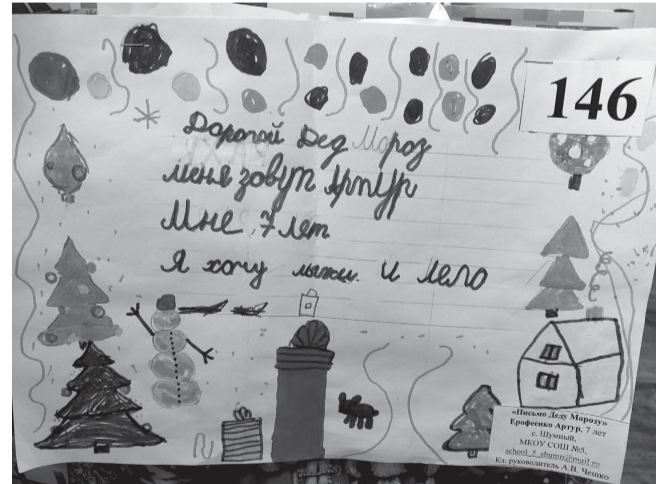 146
Дорогой Дед Мороз
меня зовут Артур
Мне 7 лет
Я хочу лыжи. и лего
«Письмо Деду Морозу»
Ерофеенко Артур, 7 лет
с. Шумный,
МКОУ СОШ №5,
school_5_shumn@mail.ru
Кл. руководитель А.В. Чешко